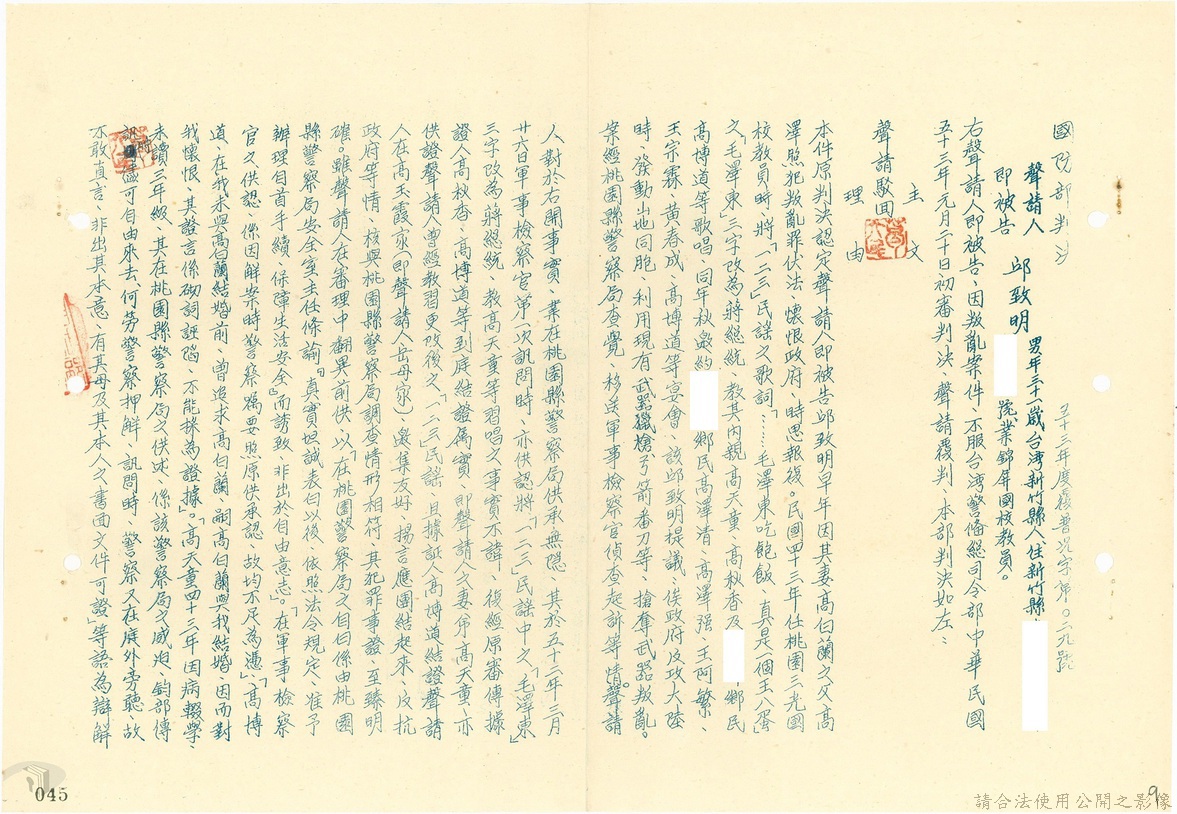 國防部判決
五十三年度覆普況字第〇二九號
聲請人
即被告
邱致明
男年三十一歲台湾新竹縣人住新竹縣
院業錦屏國校教員。
右聲請人即被告、因叛亂案件、不服台湾警備総司令部中華民國
五十三年元月二十日初審判決、聲請覆判、本部判決如左：
主文
聲請駁回
理由
本件原判決認定聲請人即被告邱致明早年因其妻高白蘭之父高
澤照犯叛亂罪伏法、懷恨政府、時思報復。民國四十三年任桃園三光國
校教員時、將「一二三」民謠之歌詞「……毛澤東吃飽飯、真是一個王八蛋」
之「毛澤東」三字改為蔣總統、教其內親高天童、高秋香及 鄉民
高博道等歌唱、同年秋邀約 鄉民高澤清、高澤强、王阿繁、
王宗霖、黃春成、高博道等宴會、該邱致明提議、俟政府反攻大陸
時、發動山地同胞、利用現有武器獵槍弓箭番刀等、搶奪武器叛亂。
案經桃園縣警察局查覺、移送軍事檢察官偵查起訴等情。聲請
人對於右開事實、業在桃園縣警察局供承無隱、其於五十二年三月
廿六日軍事檢察官第一次訊問時、亦供認將「一二三」民謠中之「毛澤東」
三字改為蔣總統、教高天童等習唱之事實不諱、復經原審傳據
證人高秋香、高博道等到庭結證属實、即聲請人之妻弟高天童、亦
供證聲請人曾經教習更改後之「一二三」民謠、且據証人高博道結證聲請
人在高玉霞家（即聲請人岳母家）邀集友好、揚言應團結起來、反抗
政府等情、核與桃園縣警察局調查情形相符、其犯罪事證、至臻明
確。雖聲請人在審理中翻異前供、以「在桃園警察局之自白係由桃園
縣警察局安全室主任條諭『真實坦誠表白以後、依照法令規定、准予
辦理自首手續、保障生活安全』而誘致、非出於自由意志。」「在軍事檢察
官之供認、係因解案時警察為要照原供承認、故均不足為憑」、「高博
道、在我未與高白蘭結婚前、曾追求高白蘭、嗣高白蘭與我結婚、因而對
我懷恨、其證言係砌詞誣陷、不能採為證據」。「高天童四十三年因病輟學、
未讀三年級、其在桃園縣警察局之供述、係該警察局之威迫、鈞部傳
訊時儘可自由來去、何勞警察押解、訊問時、警察又在庭外旁聽、故
不敢直言、非出其本意、有其母及其本人之書面文件可證」等語為辯解
045
9
請合法使用公開之影像